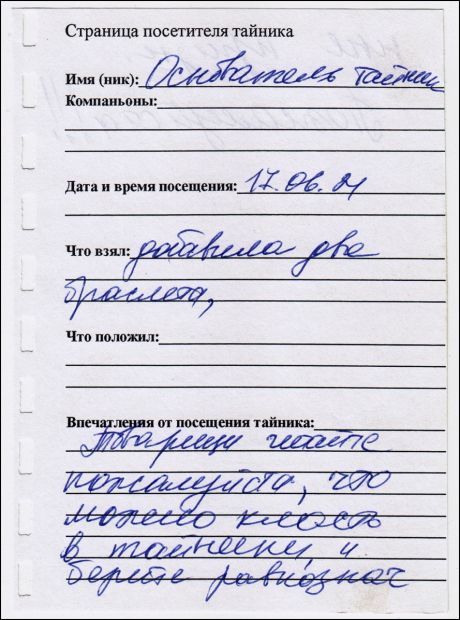 Страница посетителя тайника
Имя (ник): Основатель тайник
Компаньоны:
Дата и время посещения: 17.06.21
Что взял: добавила два
браслета,
Что положил:
Впечатления от посещения тайника:
Товарищи читайте
пожалуйста, что
можно класть
в тайники, и
берите равнознач